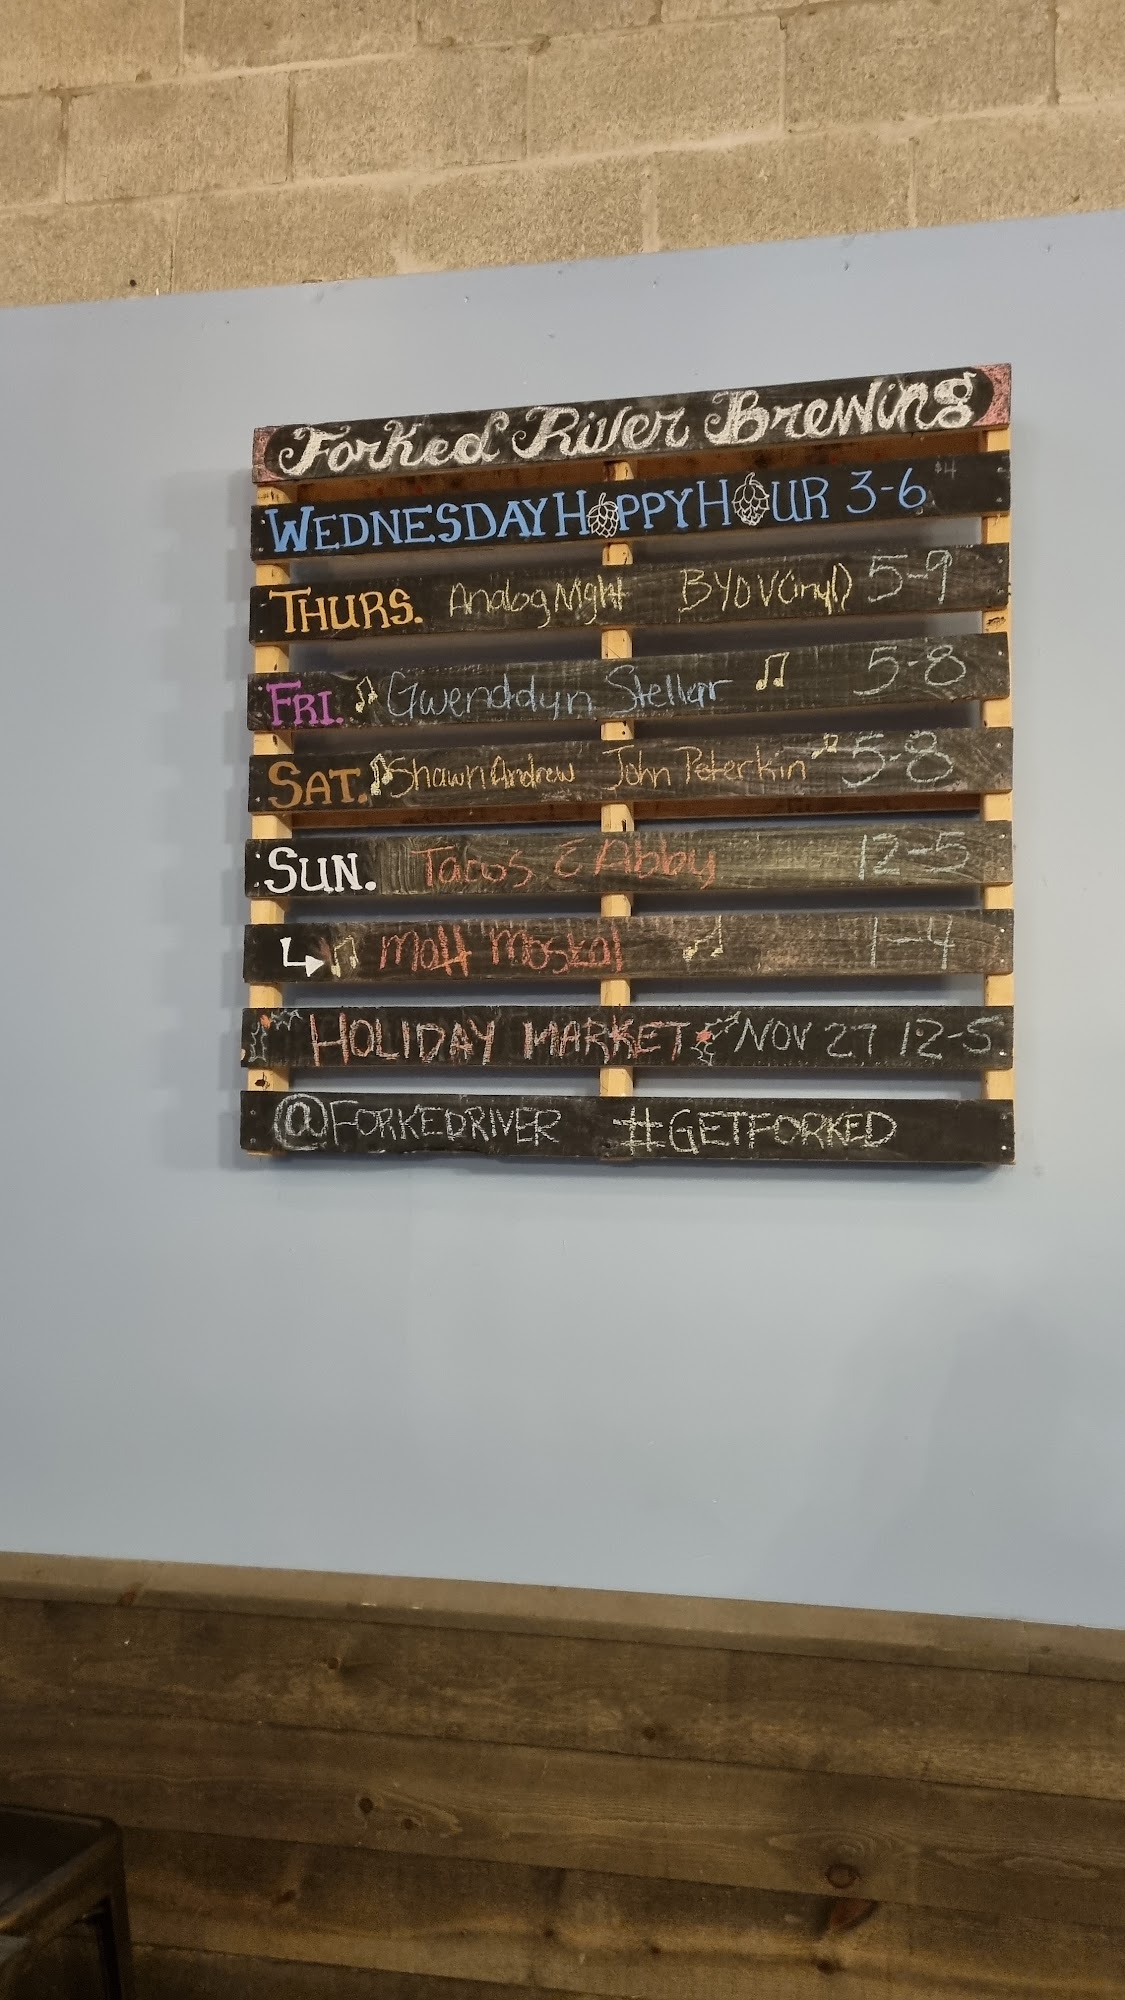 Forked River Brewing
WEDNESDAY HOPPY HOUR 3-6 $4
THURS. Analog Night BYOV(inyl) 5-9
FRI. Gwenddyn Stellar 5-8
SAT. Shawn Andrew John Peterkin 5-8
SUN. Tacos & Abby 12-5
Matt Moskal 1-4
HOLIDAY MARKET NOV 27 12-5
@FORKEDRIVER #GETFORKED